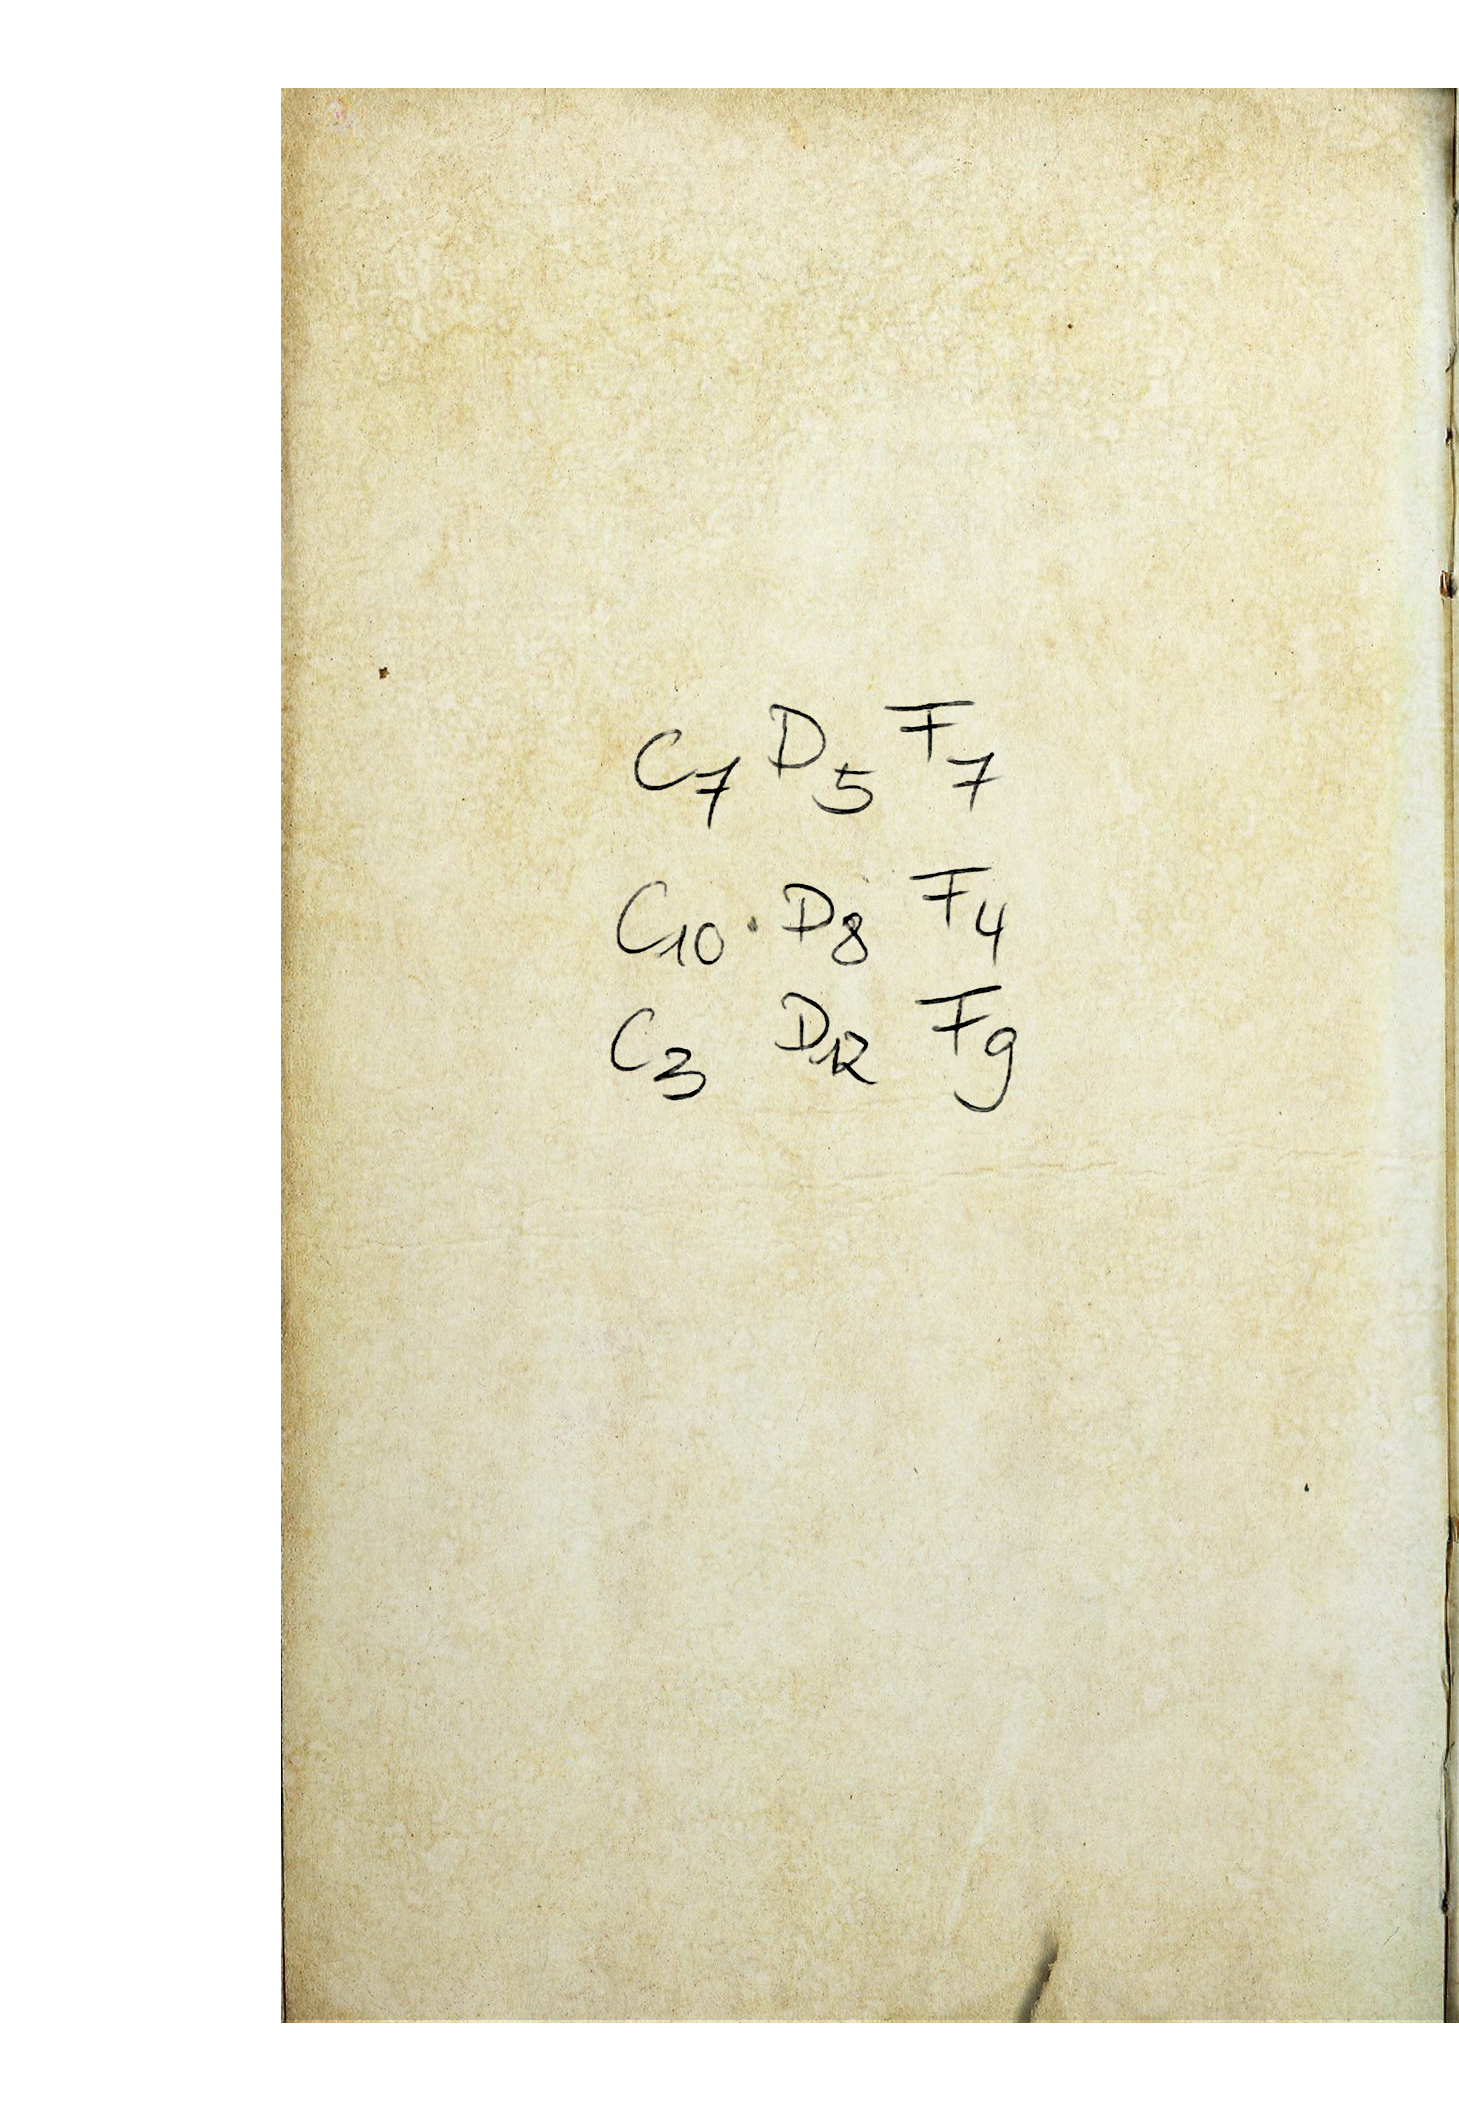 C7 D5 F7
C10 D8 F4
C3 D12 F9